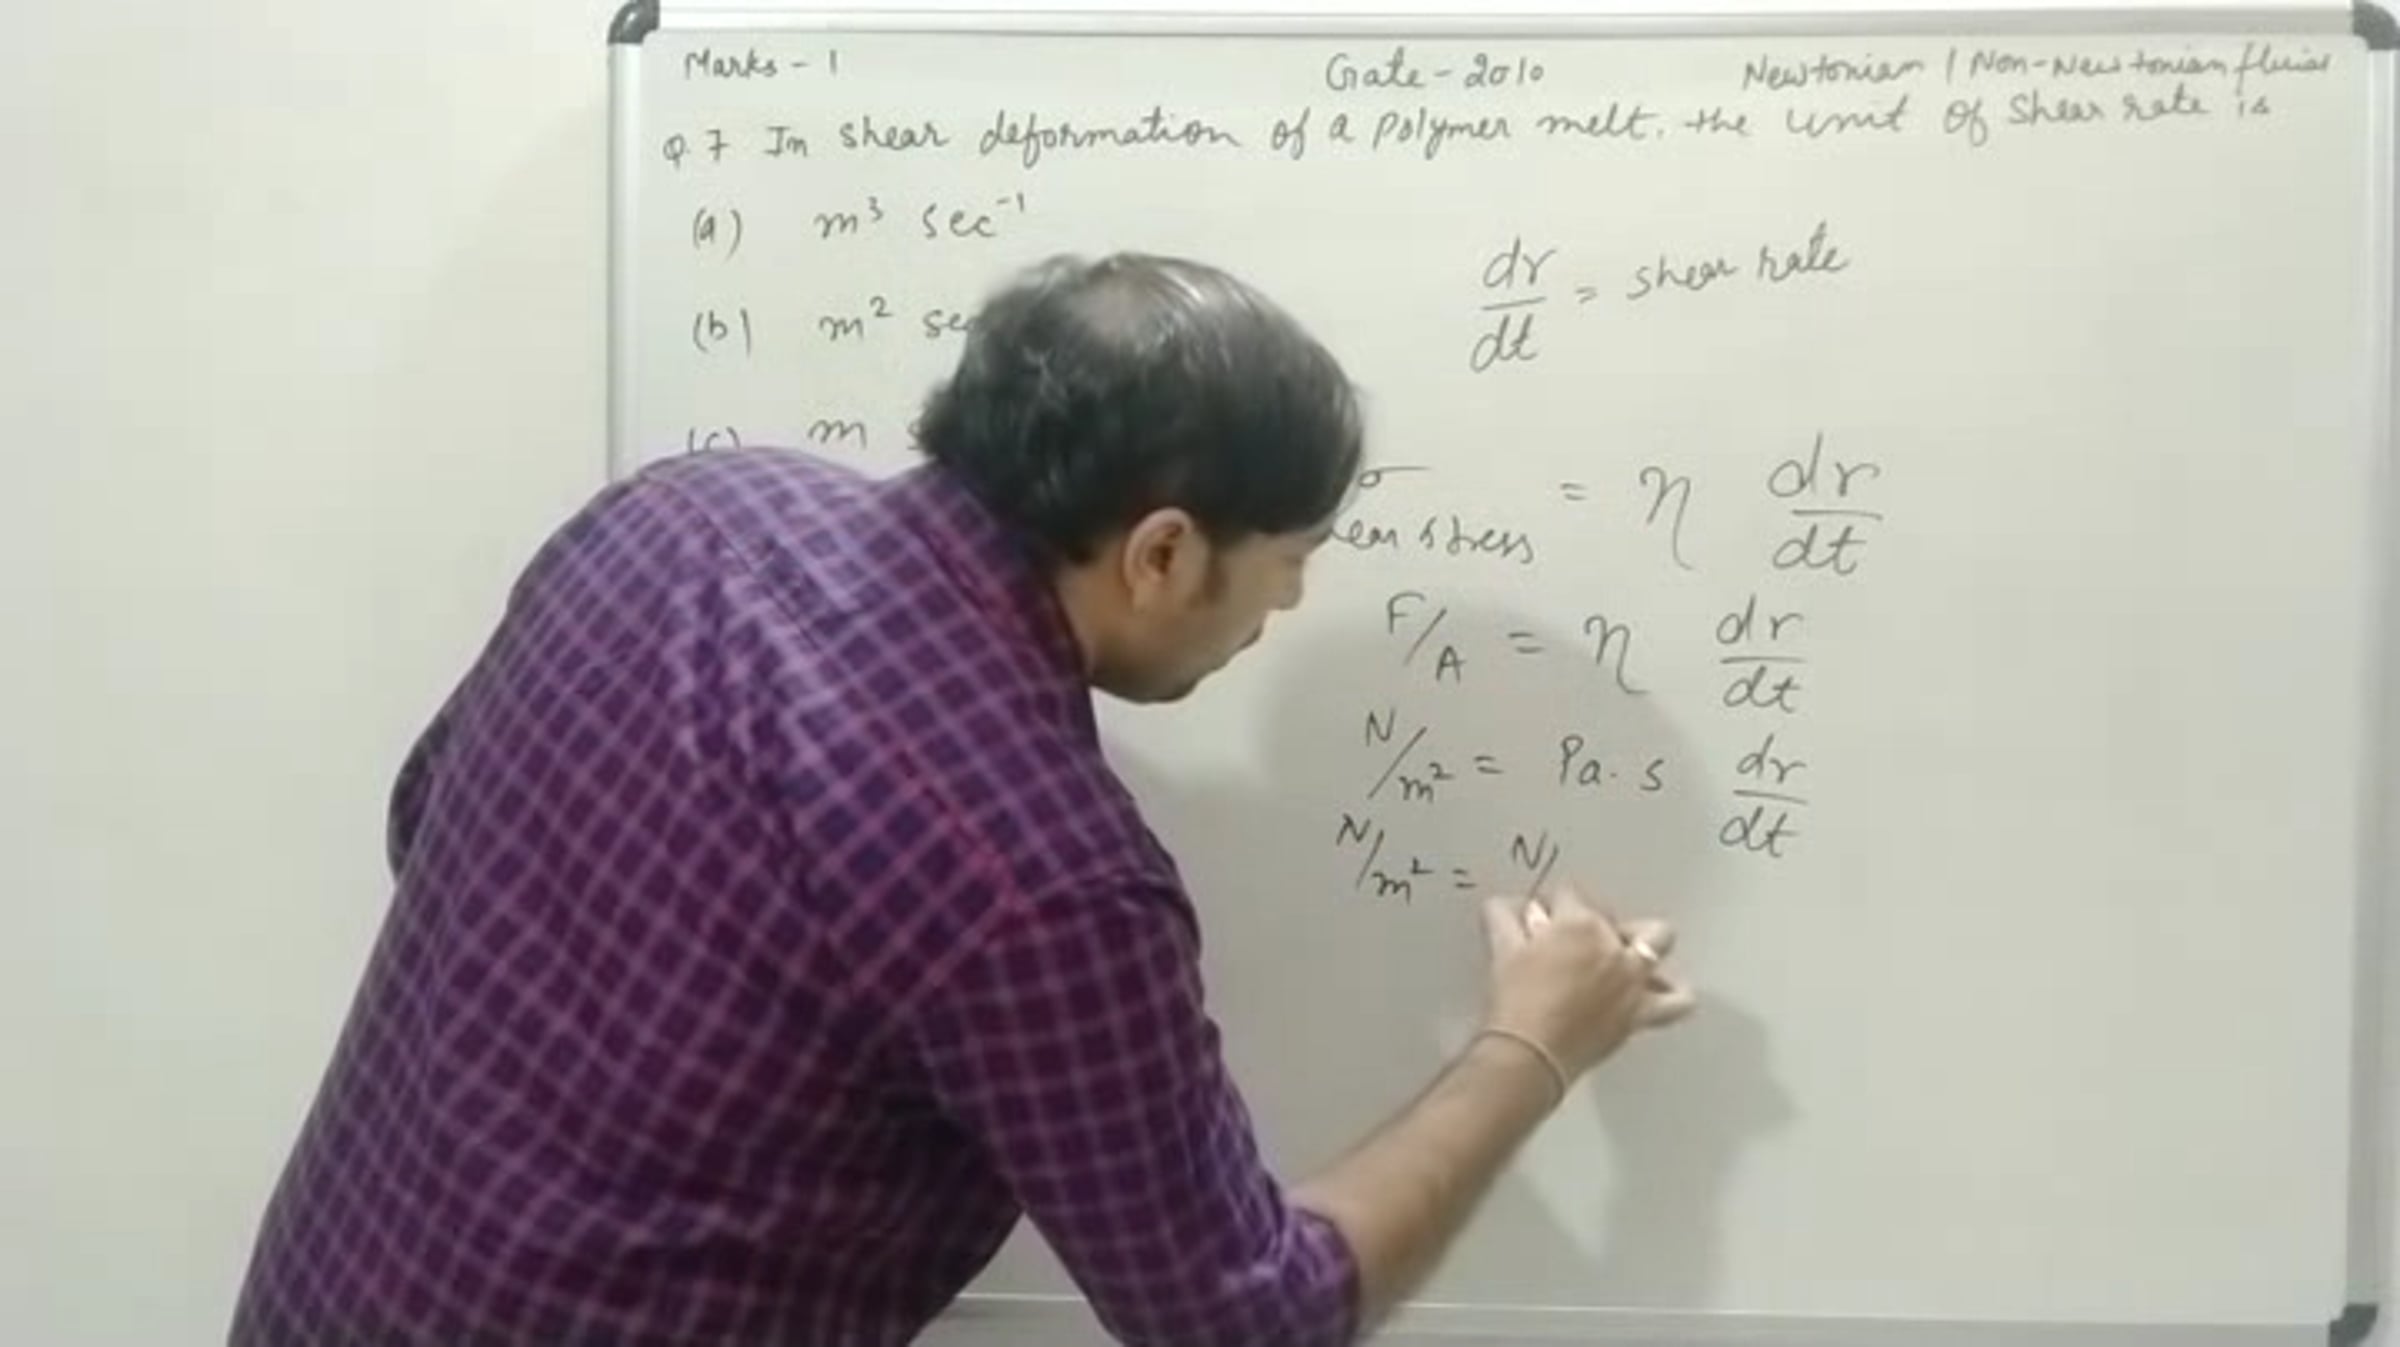 Marks - 1
Gate - 2010
Newtonian / Non-Newtonian fluids
Q.7 In shear deformation of a polymer melt, the unit of shear rate is
(a) m³ sec⁻¹
(b) m²
(c) m
dr/dt = shear rate
σ = η dr/dt
stress
F/A = η dr/dt
N/m² = Pa.s dr/dt
N/m² = N/